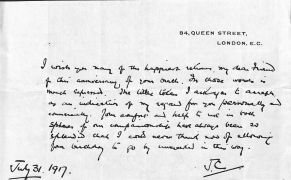 84, QUEEN STREET,
LONDON, E.C.
I wish you many of the happiest returns my dear Friend
of this anniversary of your birth. In those words is
much expressed. The little token I ask you to accept
as an indication of my regard for you personally and
comradely. Your and help to me in both
of our companionship have always been so
splendid that I could never think now of allowing
your birthday to go by unmarked in this way.
July 31. 1917.